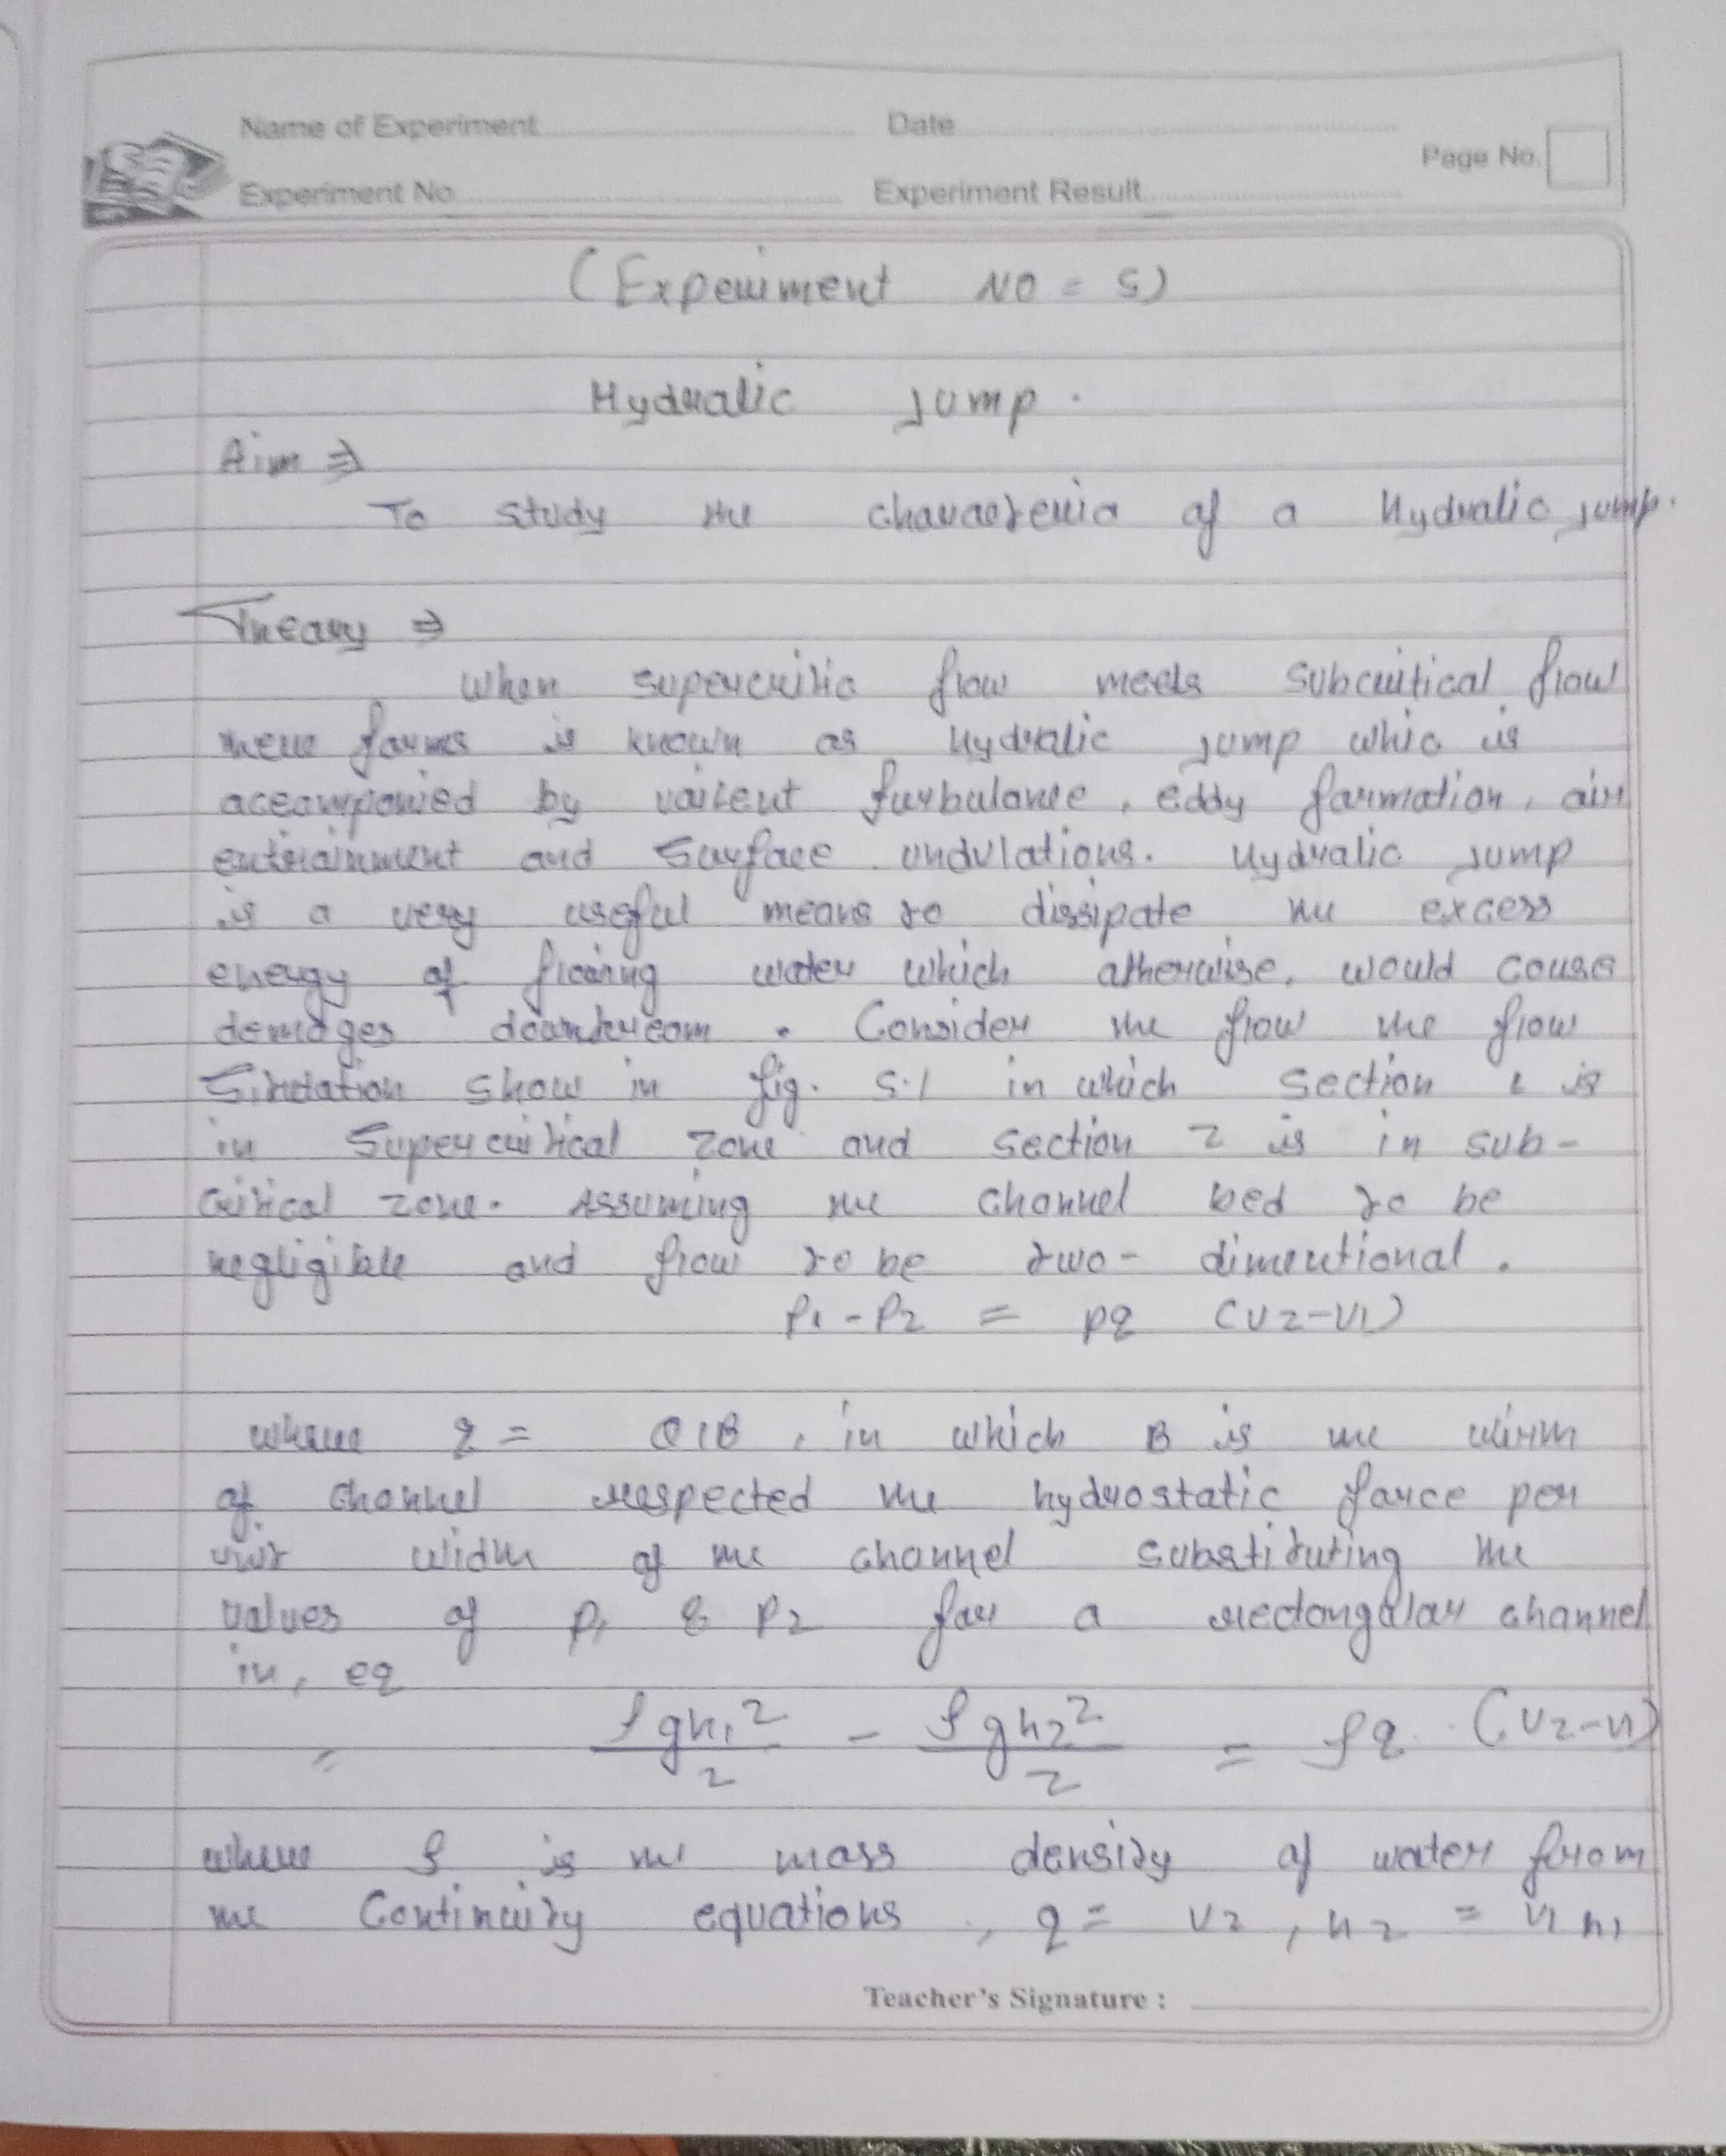 Name of Experiment
Date
Page No.
Experiment No.
Experiment Result
(Experiment NO = 5)
Hydralic Jump.
Aim ⇒
To study the characteria of a Hydralic jump.
Theary ⇒
When supercritic flow meets subcritical flow
there forms is known as hydralic jump whic is
accompanied by voilent furbulance, eddy formation, air
entrainment and Surface undulations. Hydralic jump
is a very useful means to dissipate the excess
energy of flowing water which otherwise, would couse
demages downstream . Consider the flow the flow
show in fig. 5.1 in which section 1 is
in Supercritical zone and section 2 is in sub-
critical zone. Assuming the channel bed to be
negligible and flow to be two- dimentional .
P1 - P2 = pq (V2-V1)
where q = Q/B , in which B is the
of channel respected the hydrostatic force per
unit width of the channel substituting the
values of P1 & P2 for a rectangalar channel
in, eq
= ρgh₁²/2 - ρgh₂²/2 = ρq (V2-V1)
where ρ is the mass density of water from
the Continuity equations , q = V2 , h2 = V1 h1
Teacher's Signature :